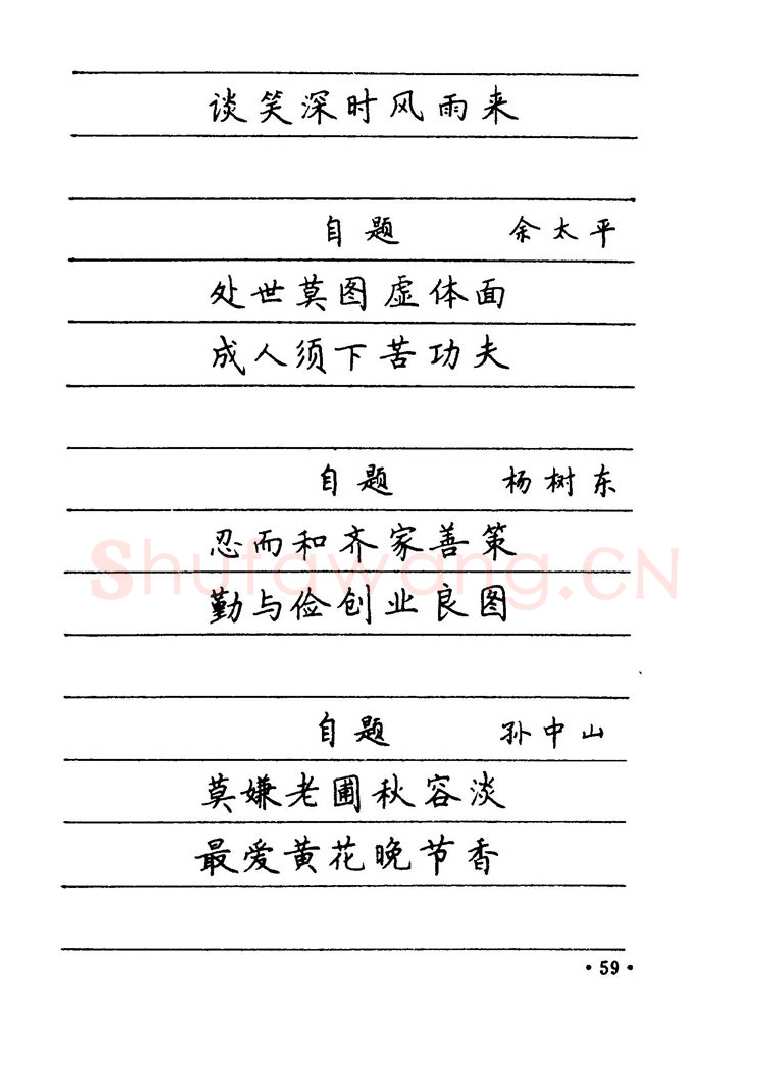 谈笑深时风雨来
自题 余太平
处世莫图虚体面
成人须下苦功夫
自题 杨树东
忍而和齐家善策
勤与俭创业良图
Shufawang.CN
自题 孙中山
莫嫌老圃秋容淡
最爱黄花晚节香
·59·